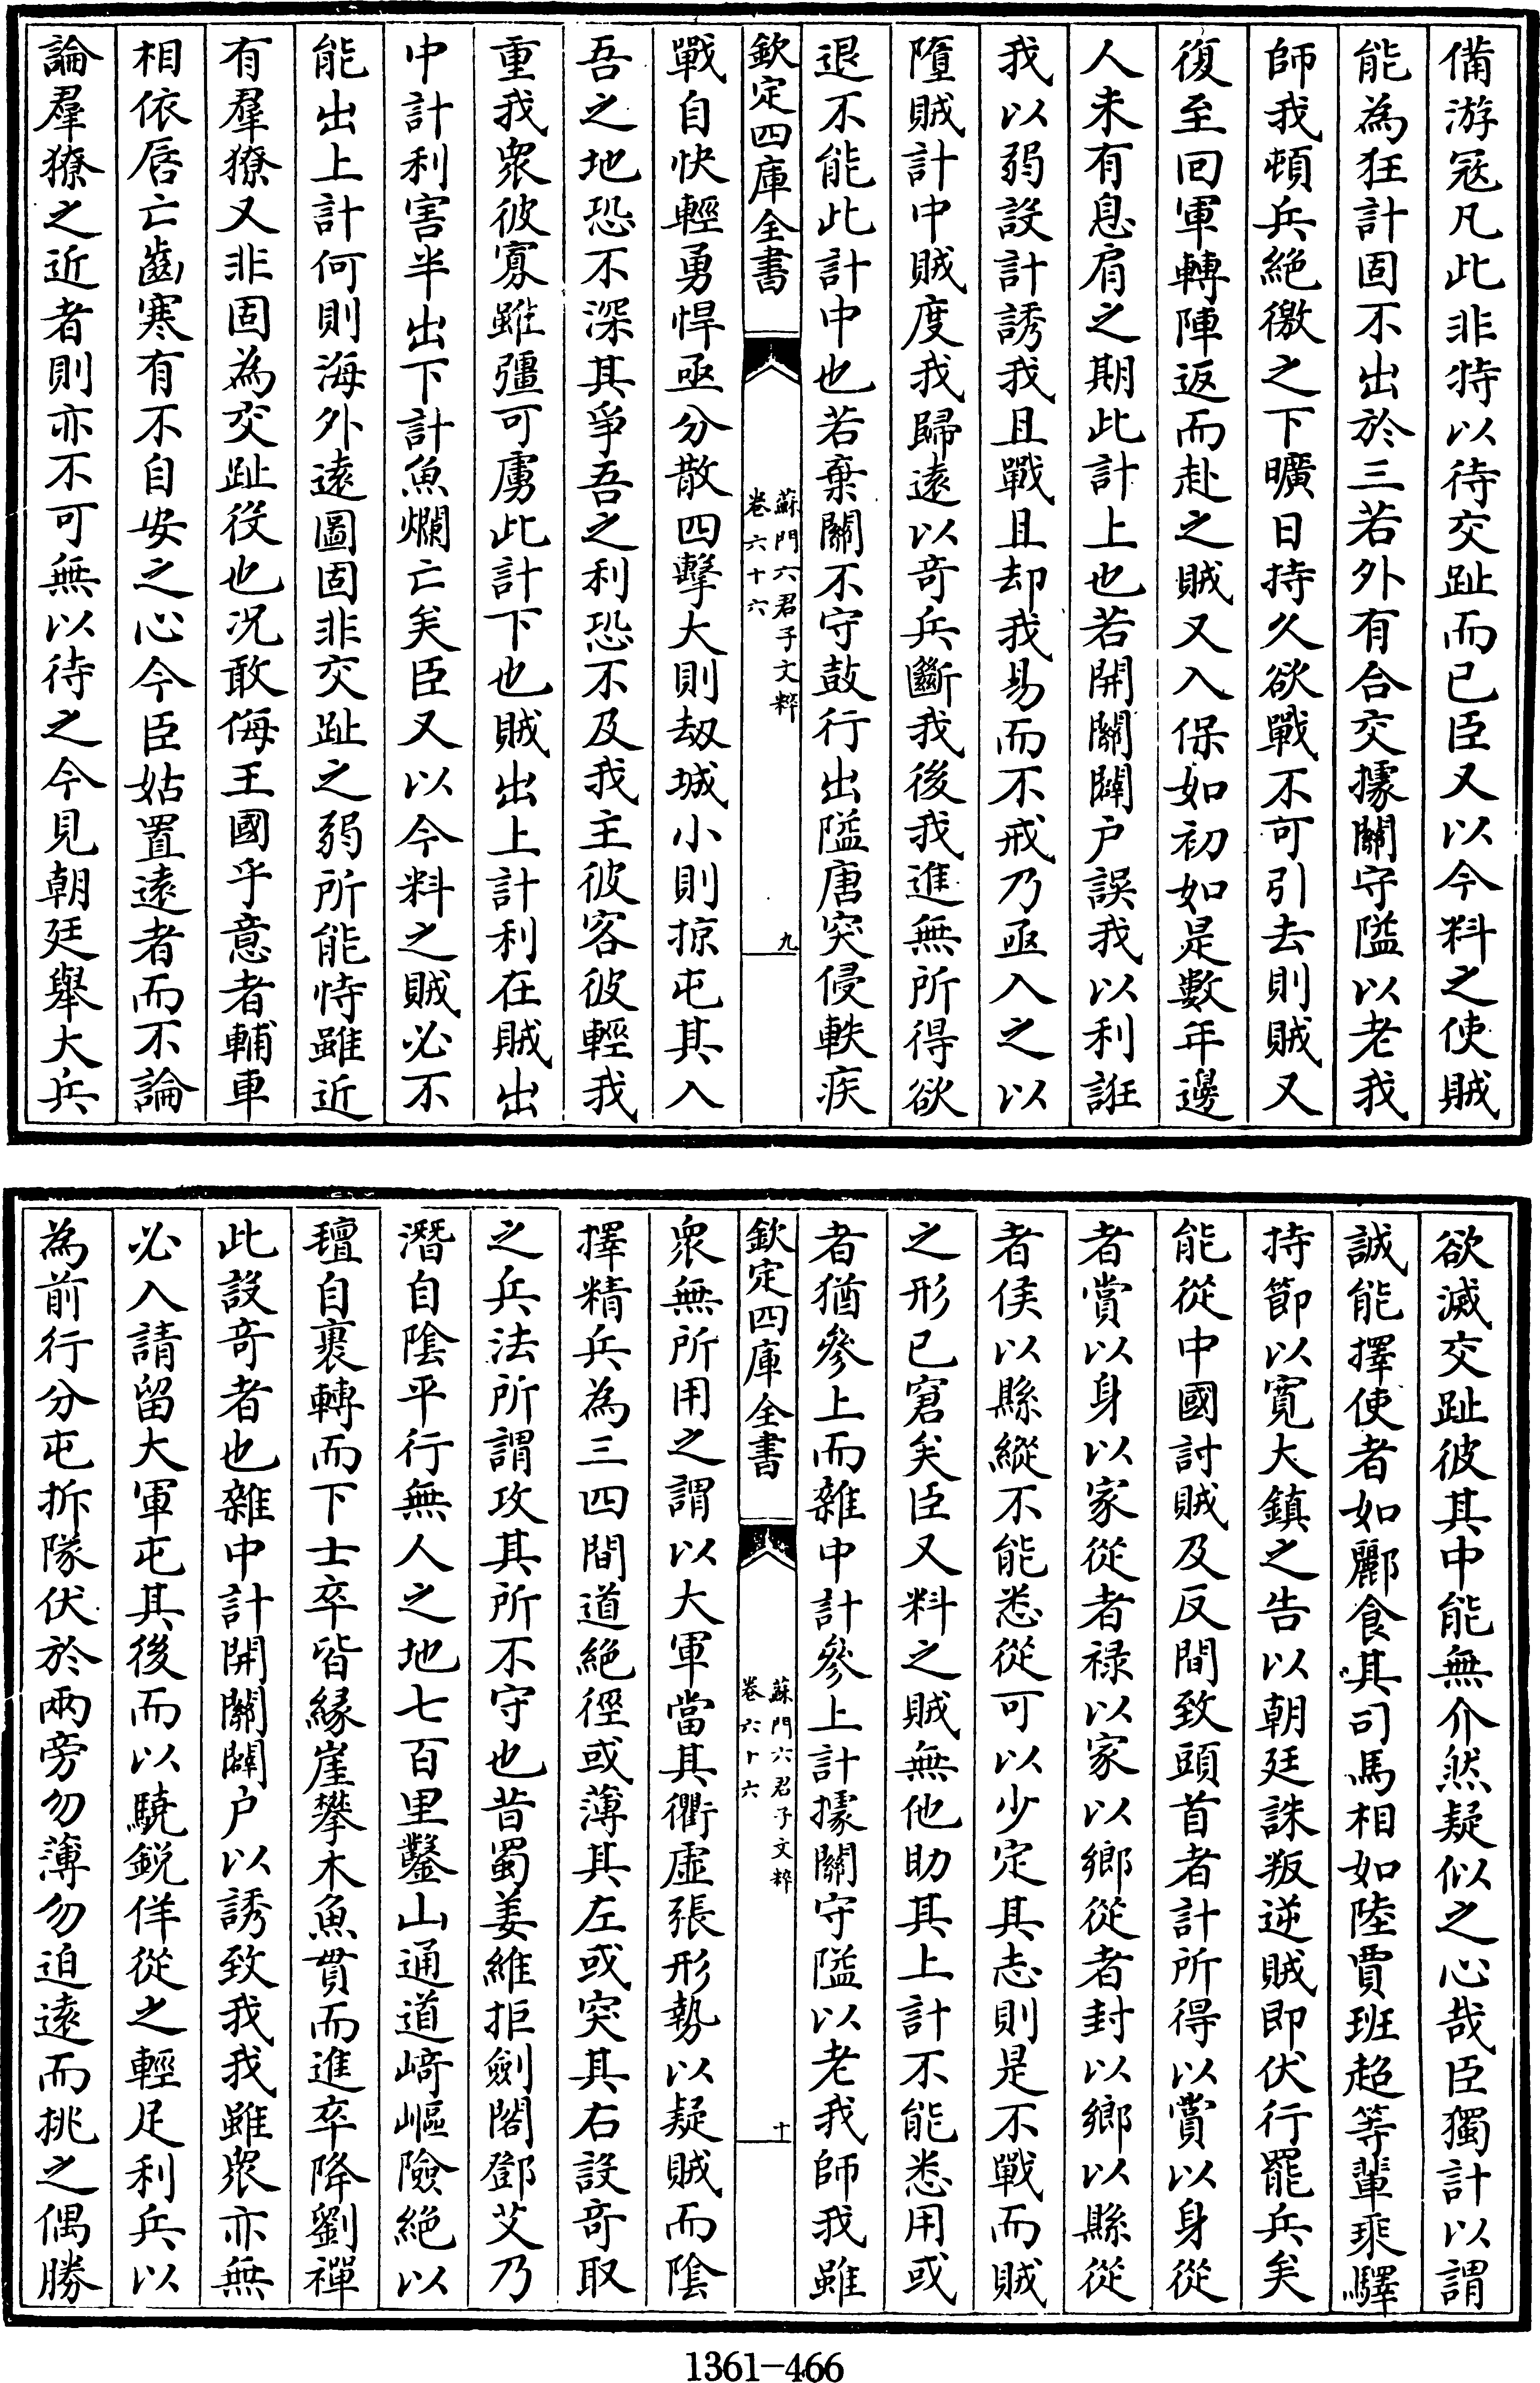 備游冦凡此非特以待交趾而已臣又以今料之使賊
能為狂計固不出於三若外有合交據關守隘以老我
師我頓兵絶徼之下曠日持久欲戰不可引去則賊又
復至回軍轉陣返而赴之賊又入保如初如是數年邊
人未有息肩之期此計上也若開關闢户誤我以利誑
我以弱設計誘我我且戰且却我易而不戒乃亟入之以
墮賊計中賊度我歸遠以奇兵斷我後我進無所得欲
退不能此計中也若棄關不守鼓行出隘唐突侵軼疾
欽定四庫全書
蘇門六君子文粹
卷六十六
九
戰自快輕勇悍亟分散四擊大則刼城小則掠屯其入
吾之地恐不深其爭吾之利恐不及我主彼客彼輕我
重我衆彼寡雖彊可虜此計下也賊出上計利在賊出
中計利害半出下計魚爛亡矣臣又以今料之賊必不
能出上計何則海外遠圖固非交趾之弱所能恃雖近
有羣獠又非固為交趾役也况敢侮王國乎意者輔車
相依唇亡齒寒有不自安之心今臣姑置遠者而不論
論羣獠之近者則亦不可無以待之今見朝廷舉大兵
欲滅交趾彼其中能無介然疑似之心哉臣獨計以謂
誠能擇使者如酈食其司馬相如陸賈班超等輩乘驛
持節以寛大鎮之告以朝廷誅叛逆賊即伏行罷兵矣
能從中國討賊及反間致頭首者計所得以賞以身從
者賞以身以家從者禄以家以鄉從者封以鄉以縣從
者侯以縣縱不能悉從可以少定其志則是不戰而賊
之形已窘矣臣又料之賊無他助其上計不能悉用或
者猶參上而雜中計參上計據關守隘以老我師我雖
欽定四庫全書
蘇門六君子文粹
卷六十六
十
衆無所用之謂以大軍當其衢虚張形勢以疑賊而陰
擇精兵為三四間道絶徑或薄其左或突其右設奇取
之兵法所謂攻其所不守也昔蜀姜維拒劍閣鄧艾乃
潛自陰平行無人之地七百里鑿山通道﨑嶇險絶以
氊自裹轉而下士卒皆縁崖攀木魚貫而進卒降劉禪
此設奇者也雜中計開關闢户以誘致我我雖衆亦無
必入請留大軍屯其後而以驍鋭佯從之輕足利兵以
為前行分屯拆隊伏於兩旁勿薄勿迫遠而挑之偶勝
1361-466